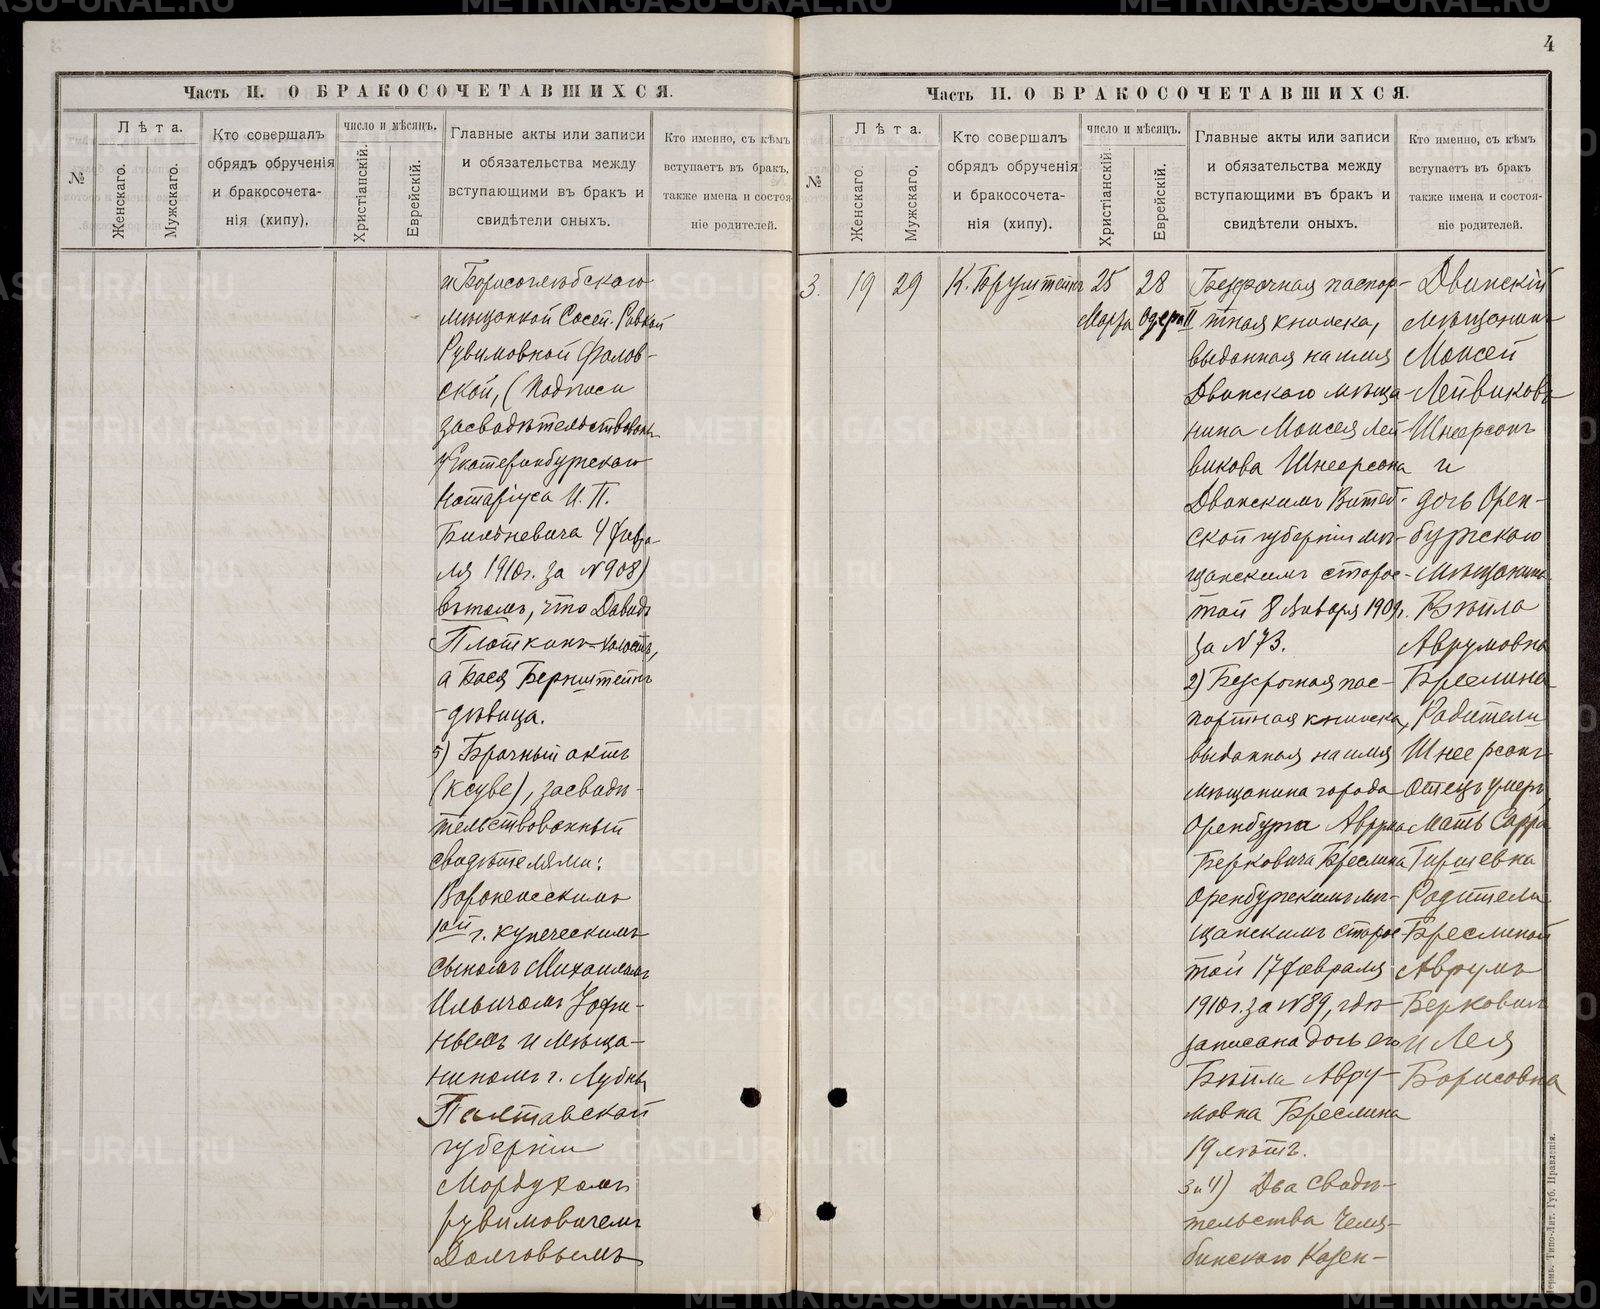 4
Часть II. О БРАКОСОЧЕТАВШИХСЯ.
№
Лѣта.
Женскаго.
Мужскаго.
Кто совершалъ
обрядъ обрученія
и бракосочета-
нія (хипу).
число и мѣсяцъ.
Христіанскій.
Еврейскій.
Главные акты или записи
и обязательства между
вступающими въ бракъ и
свидѣтели оныхъ.
Кто именно, съ кѣмъ
вступаетъ въ бракъ,
также имена и состоя-
ніе родителей.
и Борисоглѣбскаго
мѣщанкой Сосей-Ривкой
Рувимовной Фалов-
ской, (подписи
засвидѣтельствованы
у Екатеринбургскаго
Нотаріуса И. П.
4 Февра-
ля 1910г. за №908)
въ томъ, что Давидъ
Плоткинъ-холостъ,
а Бася Бернштейнъ
-дѣвица.
5) Брачный актъ
(ксубе), засвидѣ-
тельствованный
свидѣтелями:
Воронежскимъ
1ой г. купеческимъ
сыномъ Михаиломъ
Ильичемъ
и мѣща-
ниномъ г. Лубны
Полтавской
губерніи
Мордухомъ
Рувимовичемъ
Долговымъ
Часть II. О БРАКОСОЧЕТАВШИХСЯ.
№
Лѣта.
Женскаго.
Мужскаго.
Кто совершалъ
обрядъ обрученія
и бракосочета-
нія (хипу).
число и мѣсяцъ.
Христіанскій.
Еврейскій.
Главные акты или записи
и обязательства между
вступающими въ бракъ и
свидѣтели оныхъ.
Кто именно, съ кѣмъ
вступаетъ въ бракъ,
также имена и состоя-
ніе родителей.
3.
19
29
К. Брунштейнъ
25
Марта
28
Одера II
Безсрочная паспор-
тная книжка,
выданная на имя
Двинскаго мѣща-
нина Моисея Лей-
викова Шнеерсона
Двинскимъ Витеб-
ской губерніи мѣ-
щанскимъ старос-
той 8 Января 1909г.
за №73.
2) Безсрочная пас-
портная книжка,
выданная на имя
мѣщанина города
Оренбурга Аврума
Берковича Бреслина
Оренбургскимъ мѣ-
щанскимъ старос-
той 17 февраля
1910г. за №89, гдѣ
записана дочь его
Бейла Авру-
мовна Бреслина
19 лѣтъ.
3 и 4) Два свидѣ-
тельства Челя-
бинскаго Казен-
Двинскій
мѣщанинъ
Моисей
Лейвиковъ
Шнеерсонъ
и
дочь Орен-
бургскаго
мѣщанина
Бейла
Аврумовна
Бреслина
Родители
Шнеерсонъ
Отецъ умеръ,
Мать Сарра
Гиршевна
Родители
Бреслиной
Аврумъ
Берковичъ
и Лея
Борисовна
Пермь. Типо-Лит. Губ. Правленія.
METRIKI.GASO-URAL.RU